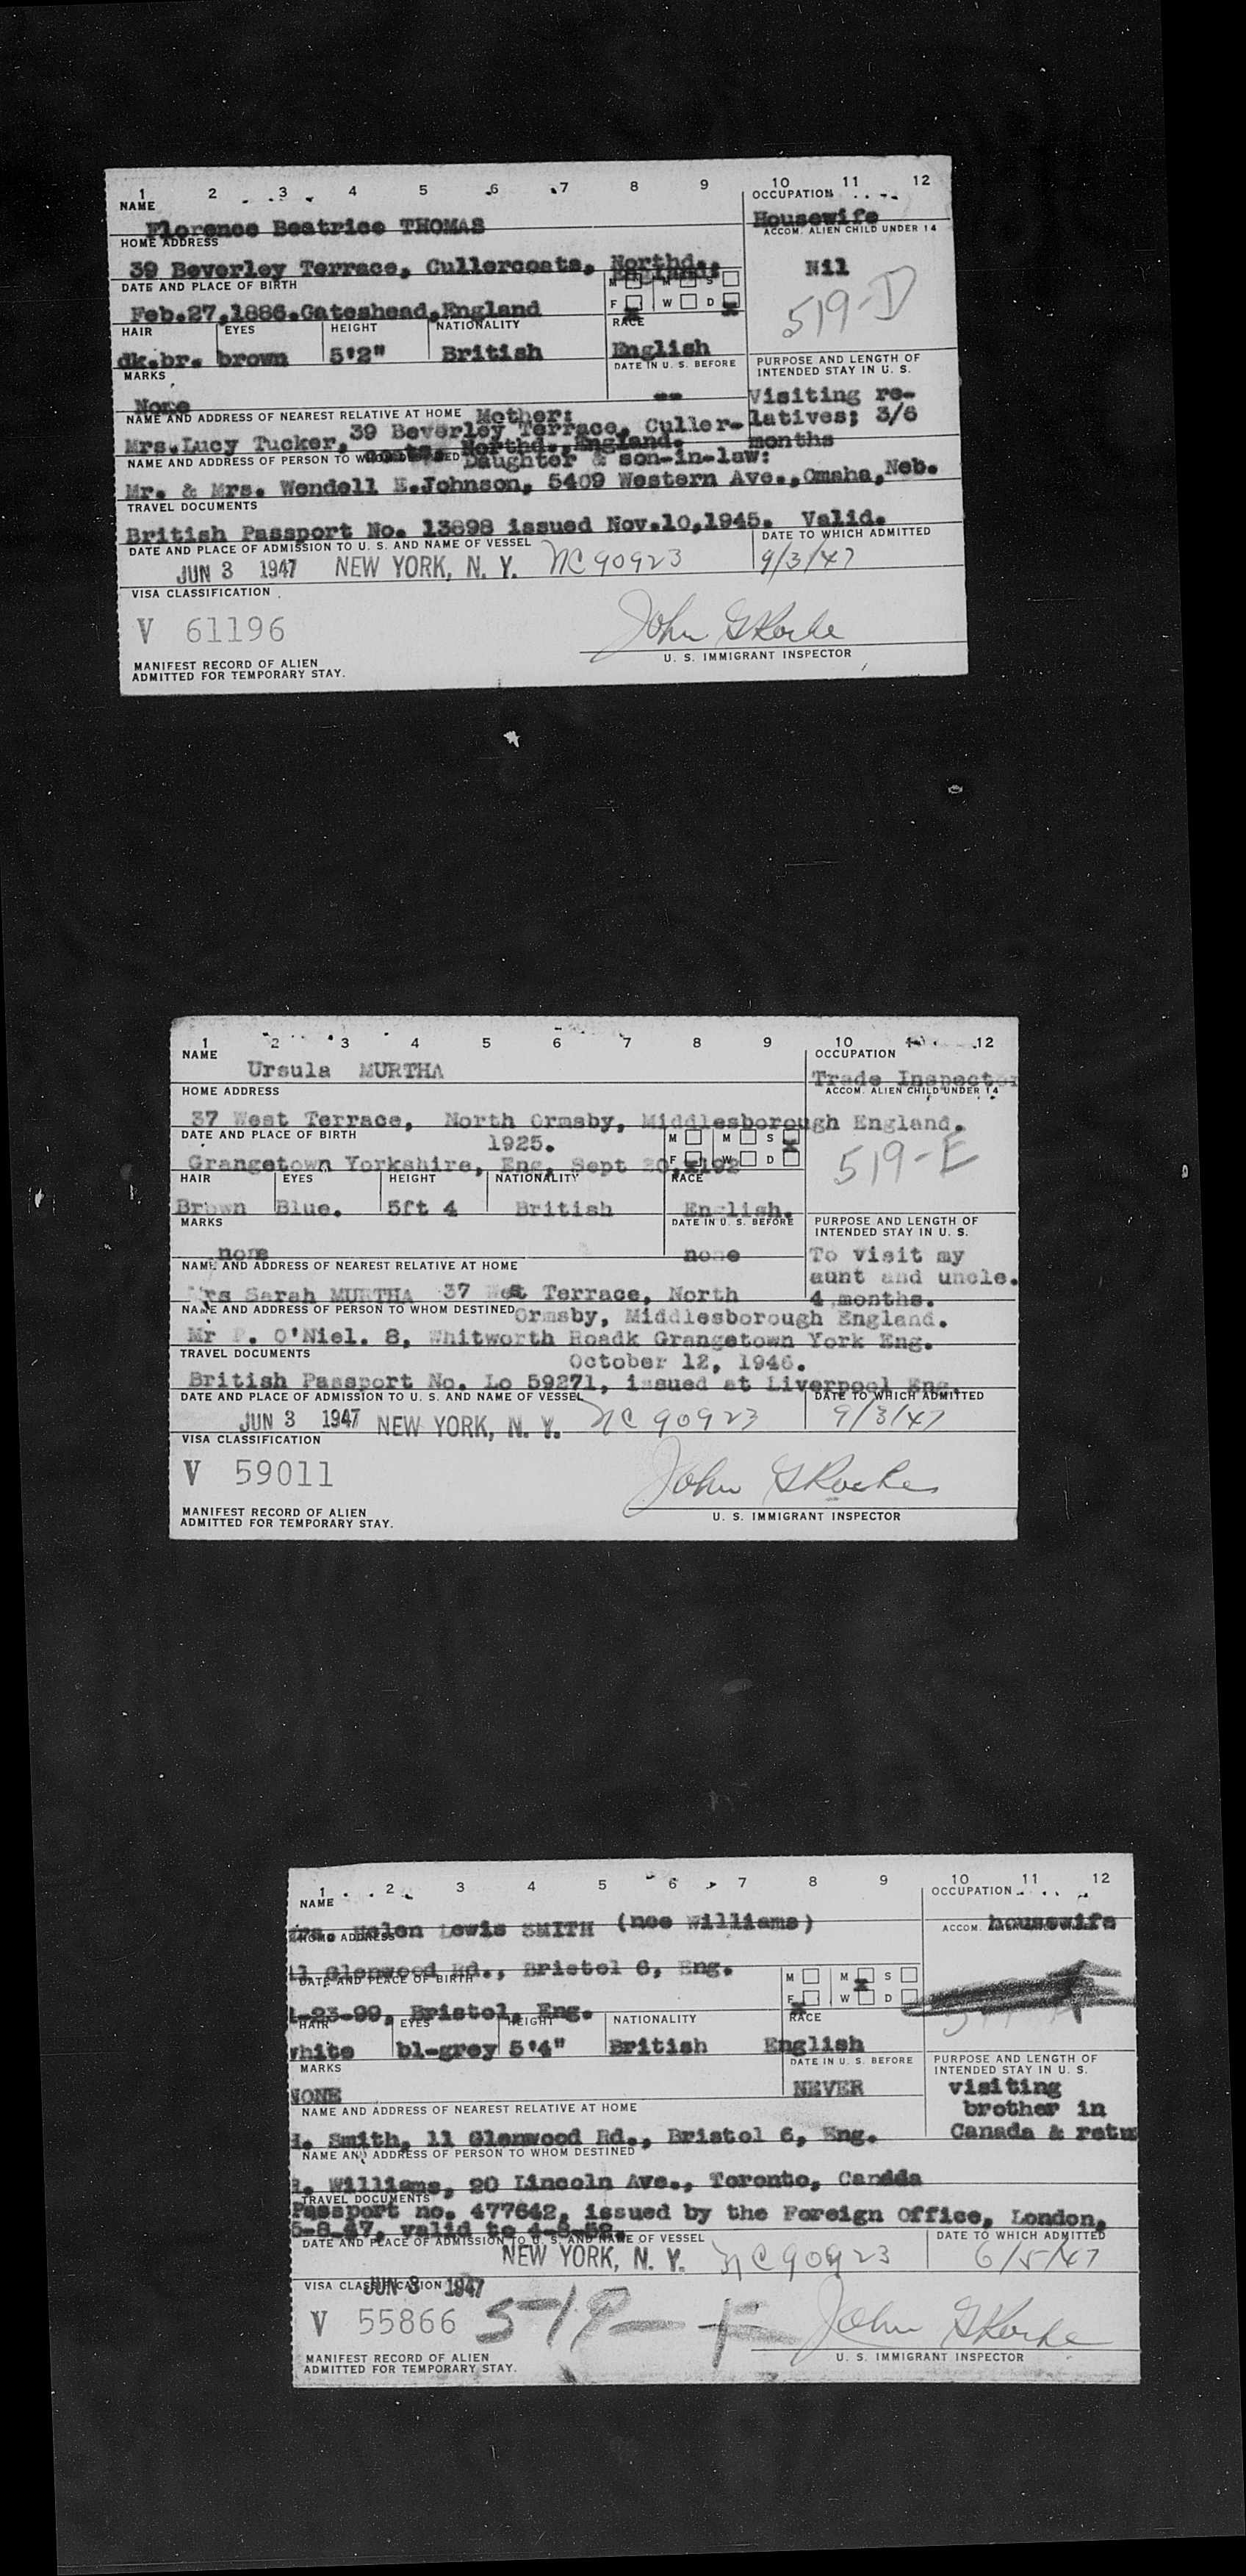 1 2 3 4 5 6 7 8 9 10 11 12
NAME OCCUPATION
Florence Beatrice THOMAS Housewife
HOME ADDRESS ACCOM. ALIEN CHILD UNDER 14
39 Beverley Terrace, Cullercoats, Northd., Nil
England.
DATE AND PLACE OF BIRTH M M S
Feb.27,1886.Gateshead,England F W D
519-D
HAIR EYES HEIGHT NATIONALITY RACE
dk.br. brown 5'2" British English
MARKS DATE IN U. S. BEFORE PURPOSE AND LENGTH OF
INTENDED STAY IN U. S.
None -- Visiting re-
latives; 3/6
months
NAME AND ADDRESS OF NEAREST RELATIVE AT HOME Mother:
Mrs.Lucy Tucker, 39 Beverley Terrace, Culler-
coats, Northd., England.
NAME AND ADDRESS OF PERSON TO WHOM DESTINED Daughter & son-in-law:
Mr. & Mrs. Wendell E.Johnson, 5409 Western Ave.,Omaha,Neb.
TRAVEL DOCUMENTS
British Passport No. 13698 issued Nov.10,1945. Valid.
DATE AND PLACE OF ADMISSION TO U. S. AND NAME OF VESSEL DATE TO WHICH ADMITTED
JUN 3 1947 NEW YORK, N. Y. NC 90923 9/3/47
VISA CLASSIFICATION
V 61196 John G Roche
MANIFEST RECORD OF ALIEN U. S. IMMIGRANT INSPECTOR
ADMITTED FOR TEMPORARY STAY.
1 2 3 4 5 6 7 8 9 10 11 12
NAME OCCUPATION
Ursula MURTHA Trade Inspector
HOME ADDRESS ACCOM. ALIEN CHILD UNDER 14
37 West Terrace, North Ormsby, Middlesborough England.
DATE AND PLACE OF BIRTH 1925. M M S
Grangetown Yorkshire, Eng, Sept 20, F W D
519-E
HAIR EYES HEIGHT NATIONALITY RACE
Brown Blue. 5ft 4 British English.
MARKS DATE IN U. S. BEFORE PURPOSE AND LENGTH OF
INTENDED STAY IN U. S.
none none To visit my
aunt and uncle.
4 months.
NAME AND ADDRESS OF NEAREST RELATIVE AT HOME
Mrs Sarah MURTHA 37 West Terrace, North
NAME AND ADDRESS OF PERSON TO WHOM DESTINED Ormsby, Middlesborough England.
Mr P. O'Niel. 8, Whitworth Roadk Grangetown York Eng.
TRAVEL DOCUMENTS October 12, 1946.
British Passport No. Lo 59271, issued at Liverpool Eng.
DATE AND PLACE OF ADMISSION TO U. S. AND NAME OF VESSEL DATE TO WHICH ADMITTED
JUN 3 1947 NEW YORK, N. Y. NC 90923 9/3/47
VISA CLASSIFICATION
V 59011 John G Roche
MANIFEST RECORD OF ALIEN U. S. IMMIGRANT INSPECTOR
ADMITTED FOR TEMPORARY STAY.
1 2 3 4 5 6 7 8 9 10 11 12
NAME OCCUPATION
Mrs. Helen Lewis SMITH (nee Williams) ACCOM. housewife
HOME ADDRESS
11 Glenwood Rd., Bristol 6, Eng.
DATE AND PLACE OF BIRTH M M S
-23-99, Bristol, Eng. F W D
HAIR EYES HEIGHT NATIONALITY RACE
white bl-grey 5'4" British English
MARKS DATE IN U. S. BEFORE PURPOSE AND LENGTH OF
INTENDED STAY IN U. S.
NONE NEVER visiting
brother in
Canada & retu
NAME AND ADDRESS OF NEAREST RELATIVE AT HOME
H. Smith, 11 Glenwood Rd., Bristol 6, Eng.
NAME AND ADDRESS OF PERSON TO WHOM DESTINED
Williams, 20 Lincoln Ave., Toronto, Canada
TRAVEL DOCUMENTS
Passport no. 477642, issued by the Foreign Office, London,
5-8-47, valid to 4-8-52.
DATE AND PLACE OF ADMISSION TO U. S. AND NAME OF VESSEL DATE TO WHICH ADMITTED
NEW YORK, N. Y. NC 90923 6/5/47
VISA CLASSIFICATION JUN 3 1947
V 55866 519-F John G Roche
MANIFEST RECORD OF ALIEN U. S. IMMIGRANT INSPECTOR
ADMITTED FOR TEMPORARY STAY.